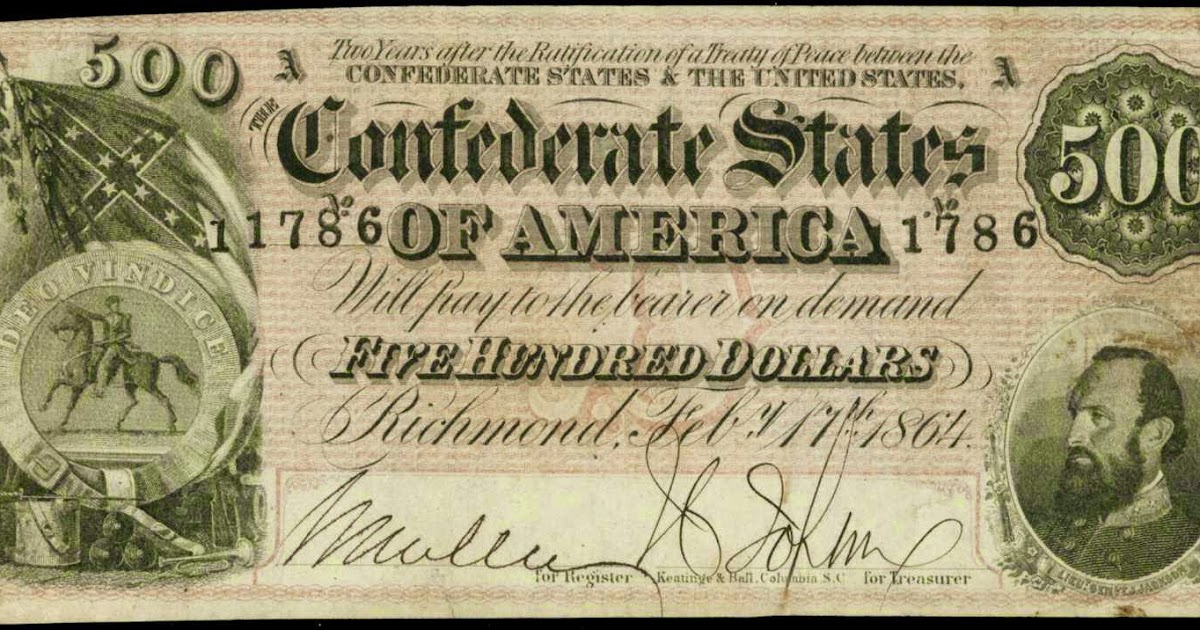 500 A Two Years after the Ratification of a Treaty of Peace between the A
CONFEDERATE STATES & THE UNITED STATES.
THE
Confederate States
500
No No
11786 OF AMERICA 11786
DEO VINDICE
Will pay to the bearer on demand
FIVE HUNDRED DOLLARS
Richmond, Feby 17th 1864.
for Register Keatinge & Ball, Columbia S.C for Treasurer
LIEUT. GEN. T. J. JACKSON